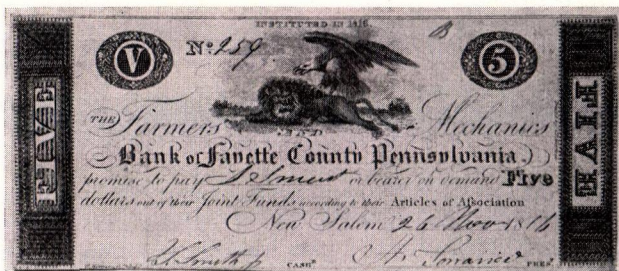 INSTITUTED IN 1816
V Nº 259 B 5
FIVE
THE Farmers AND Mechanics
Bank of Fayette County Pennsylvania
promise to pay or bearer on demand Five
dollars out of their Joint Funds according to their Articles of Association
New Salem 26 Nov 1816
CASHR PREST
FIVE